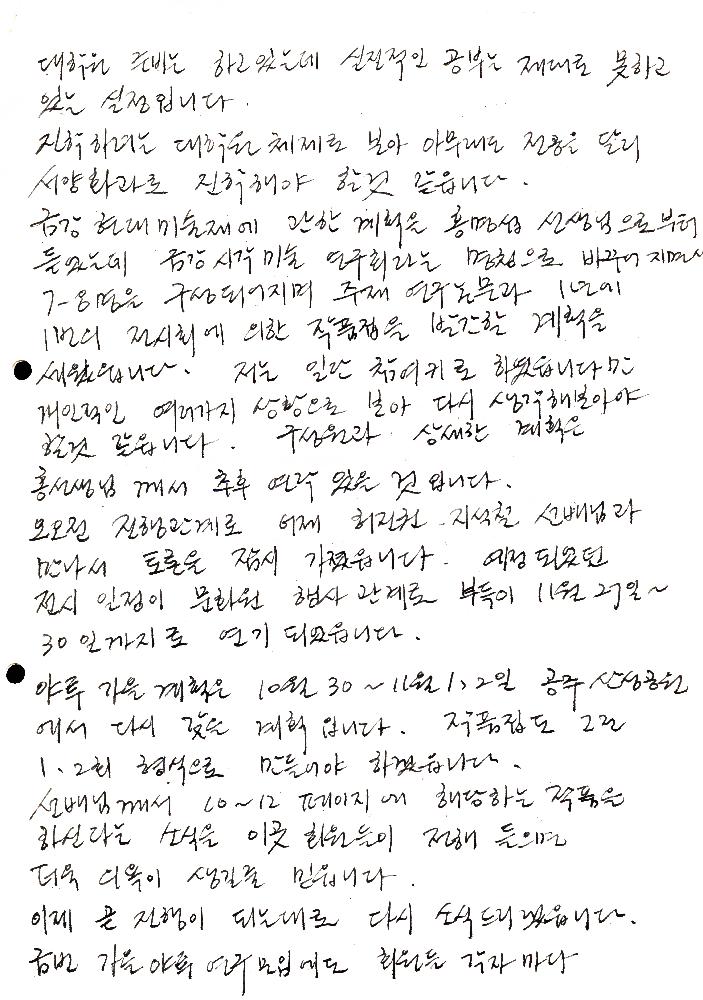 대학원 준비는 하고있는데 실질적인 공부는 제대로 못하고
있는 실정입니다.
진학하려는 대학원 체제로 보아 아무래도 전공을 달리
서양화과로 진학해야 할것 같읍니다.
금강 현대미술제에 관한 계획을 홍명섭 선생님으로부터
들었는데 금강 시각미술 연구회라는 명칭으로 바꾸어 지면서
7-8명을 구성되어지며 주제 연구논문과 1년에
1번의 전시회에 의한 작품집을 발간할 계획을
세웠읍니다. 저는 일단 참여키로 하였읍니다만
개인적인 여러가지 상황으로 보아 다시 생각해보아야
할것 같읍니다. 구성원과 상세한 계획은
홍선생님 께서 추후 연락 있을 것 입니다.
모오전 진행관계로 어제 허진권 지석철 선배님과
만나서 토론을 잠시 가졌읍니다. 예정 되었던
전시 일정이 문화원 행사 관계로 부득이 11월 29일~
30일까지로 연기 되었읍니다.
야투 가을 계획은 10월 30~11월 1, 2일 공주 산성공원
에서 다시 갖을 계획 입니다. 작품집도 그간
1. 2회 형식으로 만들어야 하겠읍니다.
선배님께서 10~12 페이지에 해당하는 작품을
하신다는 소식을 이곳 회원들이 전해 들으면
더욱 의욕이 생길줄 믿읍니다.
이제 곧 진행이 되는대로 다시 소식드리겠읍니다.
금번 가을 야투 연구모임에도 회원들 각자마다